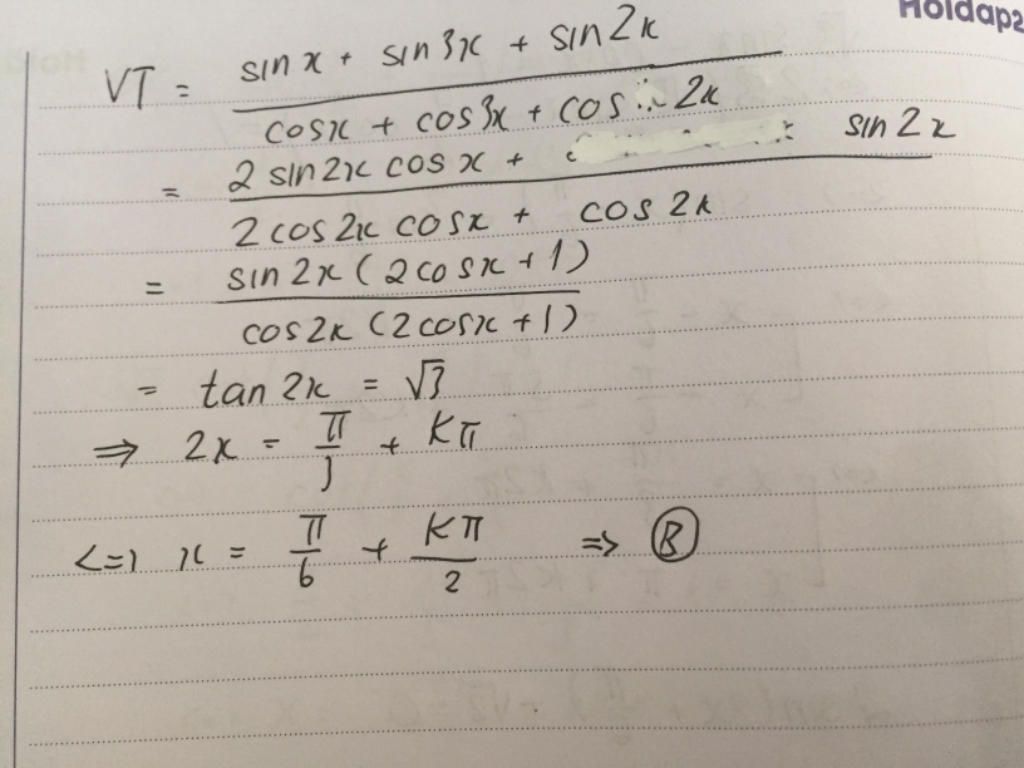 Hoidap2
VT = (sin x + sin 3x + sin 2x) / (cos x + cos 3x + cos 2x)
= (2 sin 2x cos x + sin 2x) / (2 cos 2x cos x + cos 2x)
= (sin 2x (2 cos x + 1)) / (cos 2x (2 cos x + 1))
= tan 2x = √3
⇒ 2x = π/3 + Kπ
<=> x = π/6 + Kπ/2 => Ⓑ